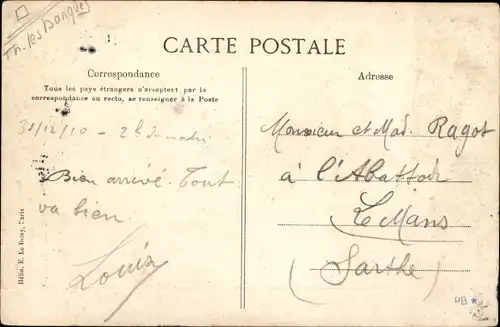 Th. les Banques
CARTE POSTALE
Correspondance
Tous les pays étrangers n'acceptent par la
correspondance au recto, se renseigner à la Poste
31/12/10 - 2h du matin
Bien arrivé. Tout
va bien.
Louis
Hélio. E. Le Deley, Paris
Adresse
Monsieur et Mad. Ragot
à l'Abattoir
Le Mans
(Sarthe)
PB